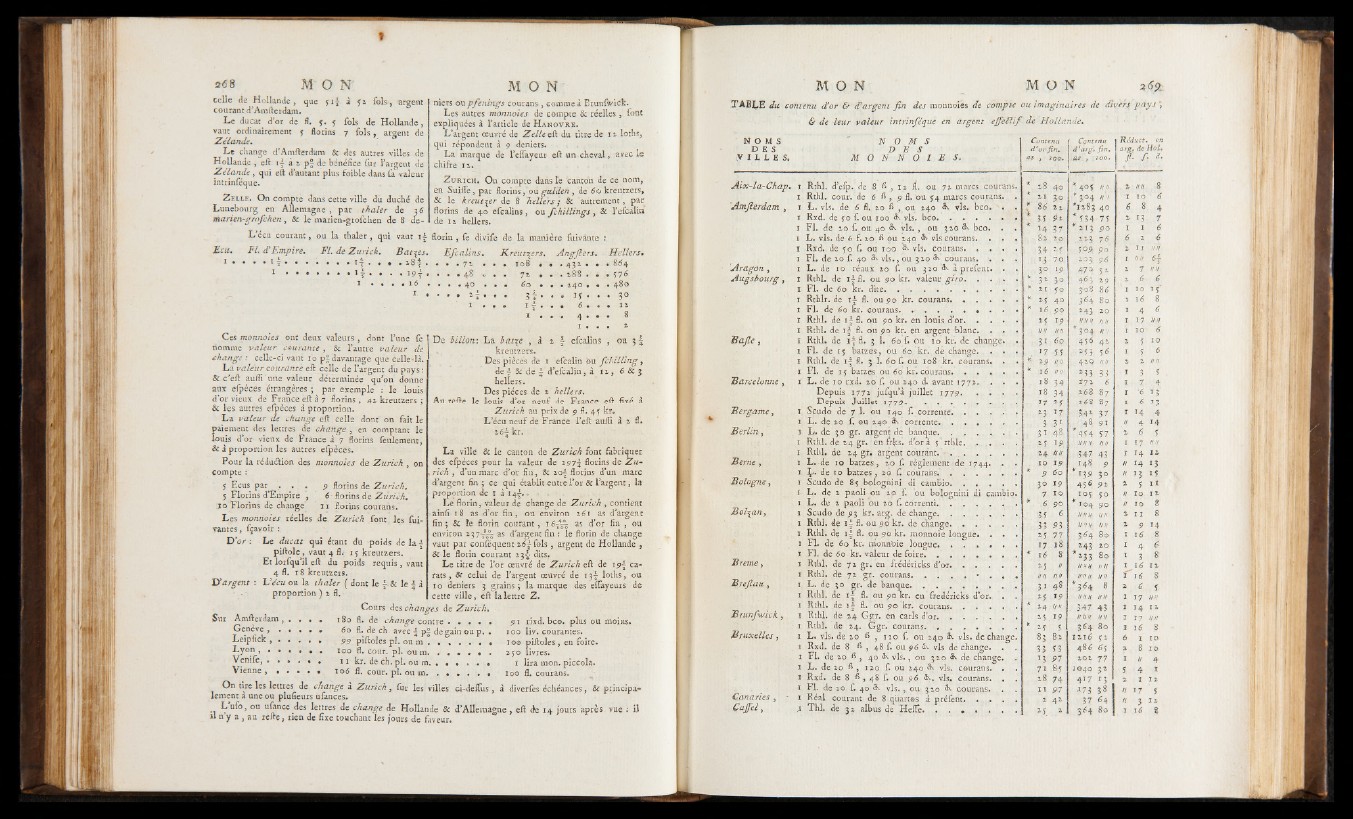 268 M O N M O N
celle de Hollande, que 51½ à 52 sols, argent
courant d'Amsterdam.
Le ducat d'or de fl. 5. 5 sols de Hollande,
vaut ordinairement 5 florins 7 sols, argent de
Zélande.
Le change d'Amsterdam & des autres villes de
Hollande, est 1½ à 2 p% de bénéfice sur l'argent de
Zélande, qui est d'autant plus foible dans sa valeur
intrinséque.
ZELLE. On compte dans cette ville du duché de
Lunebourg en Allemagne, par thaler de 36
marien-groschen, & le marien-groschen de 8 de-
niers ou pfenings courans, comme à Brunswick.
Les autres monnoies de compte & réelles, sont
expliquées à l'article de HANOVRE.
L'argent œuvré de Zelle est du titre de 12 loths,
qui répondent à 9 deniers.
La marque de l'essayeur est un cheval, avec le
chifre 12.
ZURICH. On compte dans le canton de ce nom,
en Suisse, par florins, ou gulden, de 60 kreutzers,
& le kreutzer de 8 hellers; & autrement, par
florins de 40 escalins, ou schillings, & l'escalin
de 12 hellers.
L'écu courant, ou la thaler, qui vaut 1½ florin, se divise de la manière suivante :
Ecu. Fl. d'Empire. Fl. de Zurich. Batzes. Escalins. Kreutzers. Angsters. Hellers.
Ces monnoies ont deux valeurs, dont l'une se
nomme valeur courante, & l'autre valeur de
change : celle-ci vaut 10 p% davantage que celle-là.
La valeur courante est celle de l'argent du pays :
& c'est aussi une valeur déterminée qu'on donne
aux espéces étrangères ; par exemple : le louis
d'or vieux de France est à 7 florins, 42 kreutzers ;
& les autres espéces à proportion.
La valeur de change est celle dont on fait le
paiement des lettres de change, en comptant le
louis d'or vieux de France à 7 florins seulement,
& à proportion les autres espéces.
Pour la réduction des monnoies de Zurich, on
compte :
5 Ecus par . . . 9 florins de Zurich.
5 Florins d'Empire, 6 florins de Zurich.
10 Florins de change 11 florins courans.
Les monnoies réelles de Zurich sont les sui-
vantes, sçavoir :
D'or : Le ducat qui étant du poids de la ½
pistole, vaut 4 fl. 15 kreutzers.
Et lorsqu'il est du poids requis, vaut
4 fl. 18 kreutzers.
D'argent : L'écu ou la thaler ( dont le ½ & le ¼ à
proportion ) 2 fl.
De bilion: La batze, à 2 ½ escalins, ou 3¾
kreutzers.
Des pièces de 1 escalin ou schilling,
de ½ & de ¼ d'escalin, à 12, 6 & 3
hellers.
Des piéces de 2 hellers.
Au reste le louis d'or neuf de France est fixé à
Zurich au prix de 9 fl. 45 kr.
L'écu neuf de France l'est aussi à 2 fl.
26½ kr.
La ville & le canton de Zurich font fabriquer
des espéces pour la valeur de 297½ florins de Zu-
rich, d'un marc d'or fin, & 20¾ florins d'un marc
d'argent fin ; ce qui établit entre l'or & l'argent, la
proportion de 1 à 14½.
Le florin, valeur de change de Zurich, contient
ainsi 18 as d'or fin, ou environ 261 as d'argent
vaut par conséquent 26½ sols, argent de Hollande,
& le florin courant 23¾ dits.
Le titre de l'or œuvré de Zurich est de 19¾ ca-
rats, & celui de l'argent œuvré de 13½ loths, ou
10 deniers 3 grains ; la marque des essayeurs de
cette ville, est la lettre Z.
Cours des changes de Zurich.
Sur Amsterdam, . . . . 180 fl. de change contre . . . . . 91 rixd. bco. plus ou moins.
Genève, . . . . . 60 fl. de ch avec ½ p% de gain ou p. . 100 liv. courantes.
Leipsick, . . . . . 99 pistoles pl. ou m . . . . . . . 100 pistoles, en foire.
Lyon, . . . . . . 100 fl. cour. pl. ou m. . . . . . . 250 livres.
Venise, . . . . . . 11 kr. de ch. pl. ou m. . . . . . . 1 lira mon. piccola.
Vienne, . . . . . 106 fl. cour. pl. ou m. . . . . . . 100 fl. courans.
On tire les lettres de change à Zurich, sur les villes ci-dessus, à diverses échéances, & principa-
lement à une ou plusieurs usances.
L'uso, ou usance des lettres de change de Hollande & d'Allemagne, est de 14 jours après vue : il
il n'y a, au reste, rien de fixe touchant les jours de faveur.
M O N M O N 269
TABLE du contenu d'or & d'argent fin des monnoies de compte ou imaginaires de divers pays,
& de leur valeur intrinséque en argent effectif de Hollande.
NOMS DES VILLES. NOMS DES MONNOIES. Contenu d'or fin. as, 100. Contenu d'arg. fin. as, 100. Réduct. en arg. de Hol. fl. s. d.
Aix-la-Chap. 1 Rthl. d'esp. de 8 fl, 12 fl. ou 72 marcs courans. * 28 40 * 405 // 2 // 8
1 Rthl. cour. de 6 fl, 9 fl. ou 54 marcs courans. * 21 30 * 304 // 1 10 6
Amsterdam, 1 L. vls. de 6 fl. 20 ß, ou 240 d. vls. bco. * 86 22 * 1283 40 6 8 4
1 Rxd. de 50 s. ou 100 d. vls. bco. * 35 92 * 534 75 2 13 7
1 Fl. de 20 s. ou 40 d. vls., ou 320 d. bco. * 14 37 * 213 90 1 1 6
1 L. vls. de 6 fl. 20 ß ou 240 d. vls courans. 82 20 1223 76 6 2 6
1 Rxd. de 50 s. ou 100 d. vls. courans. 34 25 509 90 2 11 //
1 Fl. de 20 s. 40 d. vls., ou 320 d. courans. 13 70 203 96 1 // 6½
Aragon, 1 L. de 10 réaux 20 s. ou 320 d. à présent. 30 19 472 52 2 7 //
Augsbourg, 1 Rthl. de 1½ fl. ou 90 kr. valeur giro. * 32 30 463 29 2 6 6
1 Fl. de 60 kr. dite. * 21 50 308 86 1 10 15
1 Rthlr. de 1½ fl. ou 90 kr. courans. * 25 40 364 80 1 16 8
1 Fl. de 60 kr. courans. * 16 90 243 20 1 4 6
1 Rthl. de 1½ fl. ou 90 kr. en louis d'or. 25 19 // // 1 17 //
1 Rthl. de 1½ fl. ou 90 kr. en argent blanc. // // * 304 // 1 10 6
Basle, 1 Rthl. de 1½ fl. 3 l. 60 s. ou 10 kr. de change. 31 60 456 42 2 5 10
1 Fl. de 15 batzes, ou 60 kr. de change. 17 55 253 56 1 5 6
1 Rthl. de 1½ fl. 3 l. 60 s. ou 108 kr. courans. * 29 // 420 // 2 2 //
1 Fl. de 15 batzes ou 60 kr. courans. * 16 // 233 33 1 3 5
Barcelonne, 1 L. de 10 rxd. 20 s. ou 240 d. avant 1772. 18 34 272 6 1 7 4
Depuis 1772 jusqu'à juillet 1779. 18 34 268 87 1 6 13
Depuis Juillet 1779. 17 25 268 87 1 6 13
Bergame, 1 Scudo de 7 l. ou 140 s. corrente. 23 17 341 37 1 14 4
1 L. de 20 s. ou 240 d. corrente. 3 31 48 91 // 4 14
Berlin, 1 L. de 30 gr. argent de banque. 31 48 * 454 57 2 6 5
1 Rthl. de 24 gr. en frks. d'or à 5 rthlr. 25 19 // // 1 17 //
1 Rthl. de 24 gr. argent courant. 24 // 347 43 1 14 12
Berne, 1 L. de 10 batzes, 20 s. réglement de 1744. 10 19 148 9 // 14 13
1 L. de 10 batzes, 20 s. courans. * 9 60 * 139 30 // 13 15
Bologne, 1 Scudo de 85 bolognini di cambio. 30 19 456 92 2 5 11
1 L. de 2 paoli ou 20 s. ou bolognini di cambio. 7 10 105 50 // 10 12
1 L. de 2 paoli ou 20 s. correnti. * 6 90 * 104 90 // 10 8
Bolzan, 1 Scudo de 93 kr. arg. de change. 35 6 // // 2 11 8
1 Rthl. de 1½ fl. ou 90 kr. de change. 33 93 // // 2 9 14
1 Rthl. de 1½ fl. ou 90 kr. monnoie longue. 25 77 364 80 1 16 8
1 Fl. de 60 kr. monnoie longue. 17 18 243 20 1 4 6
1 Fl. de 60 kr. valeur de foire. * 16 8 * 233 80 1 3 8
Breme, 1 Rthl. de 72 gr. en frédéricks d'or. 25 // // // 1 16 12
1 Rthl. de 72 gr. courans. // // // // 1 16 8
Breslau, 1 L. de 30 gr. de banque. 31 48 * 364 8 2 6 5
1 Rthl. de 1½ fl. ou 90 kr. en frédéricks d'or. 25 19 // // 1 17 //
1 Rthl. de 1½ fl. ou 90 kr. courans. * 24 // 347 43 1 14 12
Brunswick, 1 Rthl. de 24 Ggr. en carls d'or. 25 19 // // 1 17 //
1 Rthl. de 24. Ggr. courans. * 25 5 364 80 1 16 8
Bruxelles, 1 L. vls. de 20 ß, 120 s. ou 240 d. vls. de change. 83 82 1216 52 6 1 10
1 Rxd. de 8 ß, 48 s. ou 96 d. vls de change. 33 53 486 65 2 8 10
1 Fl. de 20 ß, 40 d. vls., ou 320 d. de change. 13 97 202 77 1 // 4
1 L. de 20 ß, 120 s. ou 240 d. vls. courans. 71 85 1040 32 5 4 1
1 Rxd. de 8 ß, 48 s. ou 96 d. vls. courans. 28 74 417 13 2 1 12
1 Fl. de 20 s. 40 d. vls., ou 320 d. courans. 11 97 173 38 // 17 5
Canaries, 1 Réal courant de 8 quartos à présent. 2 42 37 64 // 3 12
Cassel, 1 Thl. de 32 albus de Hesse. 25 2 364 80 1 16 8